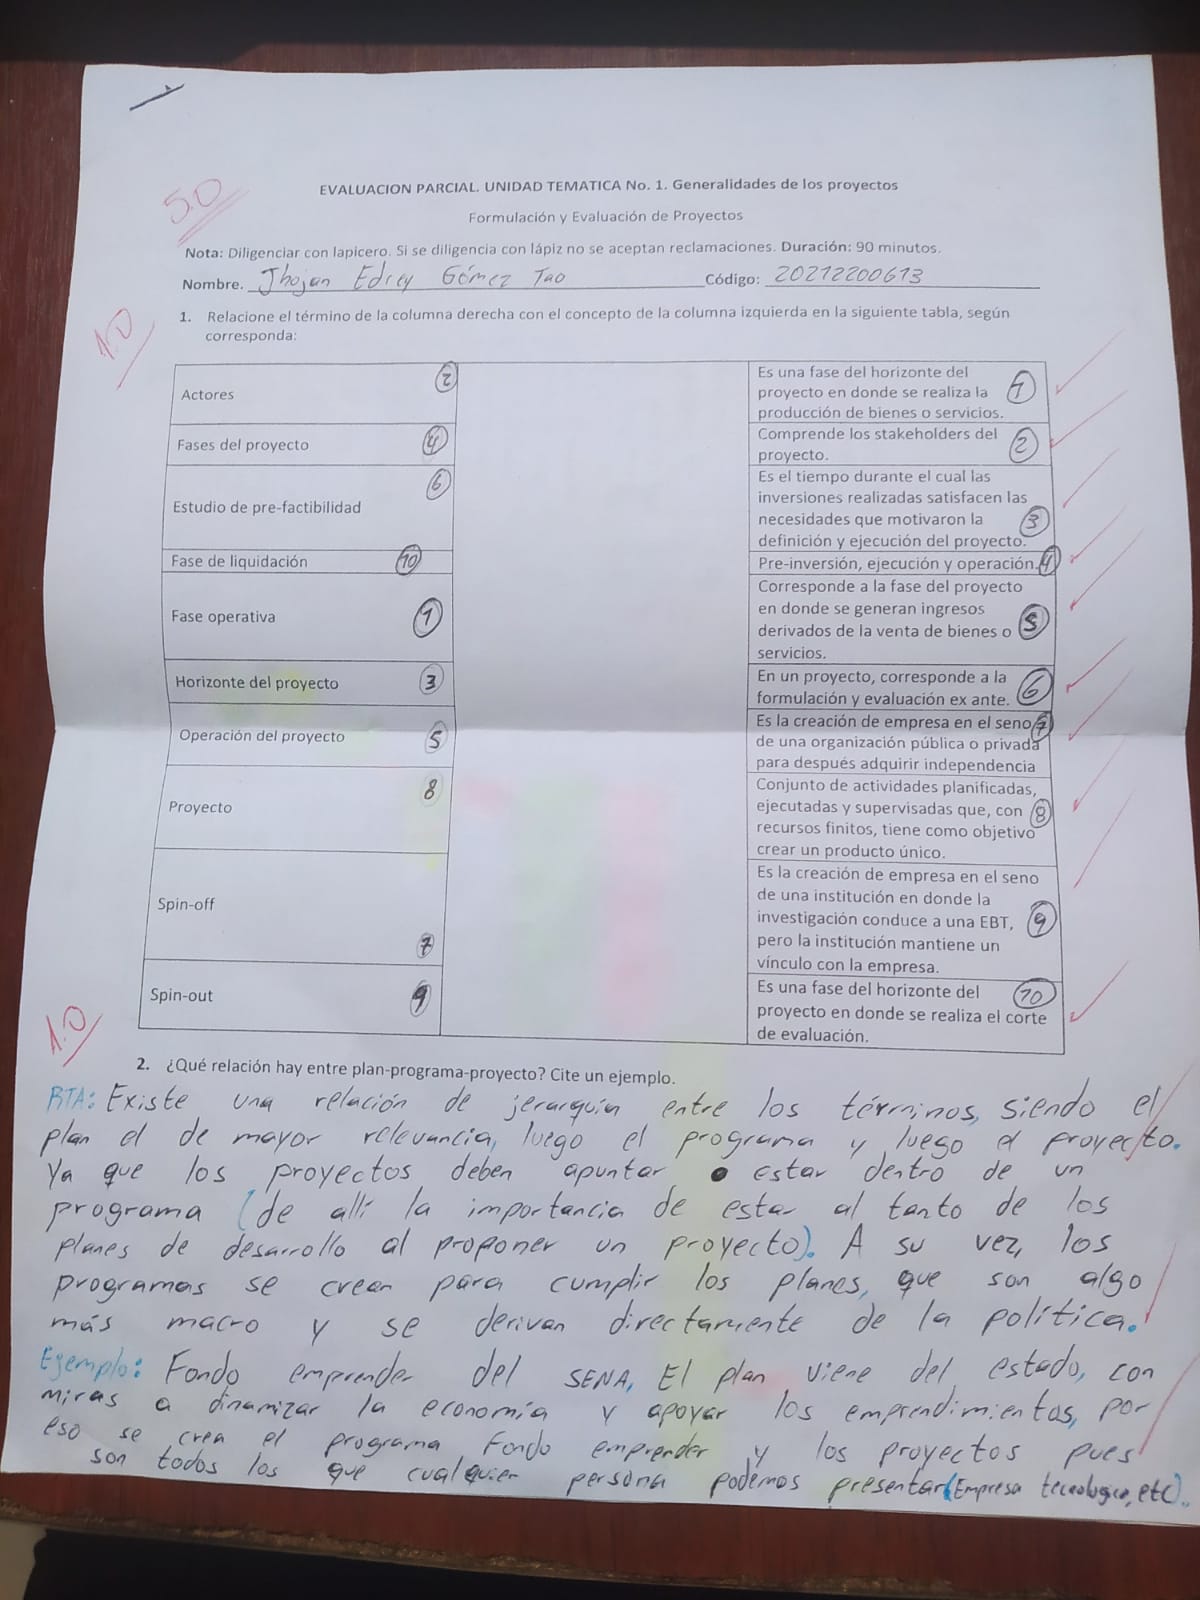 5.0
EVALUACION PARCIAL. UNIDAD TEMATICA No. 1. Generalidades de los proyectos
Formulación y Evaluación de Proyectos
Nota: Diligenciar con lapicero. Si se diligencia con lápiz no se aceptan reclamaciones. Duración: 90 minutos.
Nombre. Jhojan Edrey Gómez Tao Código: 20212200613
1.0
1. Relacione el término de la columna derecha con el concepto de la columna izquierda en la siguiente tabla, según
corresponda:
Actores 2
Es una fase del horizonte del
proyecto en donde se realiza la 1
producción de bienes o servicios.
Fases del proyecto 4
Comprende los stakeholders del
proyecto. 2
Estudio de pre-factibilidad 6
Es el tiempo durante el cual las
inversiones realizadas satisfacen las
necesidades que motivaron la 3
definición y ejecución del proyecto.
Fase de liquidación 10
Pre-inversión, ejecución y operación. 4
Fase operativa 1
Corresponde a la fase del proyecto
en donde se generan ingresos
derivados de la venta de bienes o 5
servicios.
Horizonte del proyecto 3
En un proyecto, corresponde a la
formulación y evaluación ex ante. 6
Operación del proyecto 5
Es la creación de empresa en el seno 7
de una organización pública o privada
para después adquirir independencia
Proyecto 8
Conjunto de actividades planificadas,
ejecutadas y supervisadas que, con 8
recursos finitos, tiene como objetivo
crear un producto único.
Spin-off 7
Es la creación de empresa en el seno
de una institución en donde la
investigación conduce a una EBT, 9
pero la institución mantiene un
vínculo con la empresa.
Spin-out 9
Es una fase del horizonte del 10
proyecto en donde se realiza el corte
de evaluación.
1.0
2. ¿Qué relación hay entre plan-programa-proyecto? Cite un ejemplo.
RTA: Existe una relación de jerarquía entre los términos, siendo el
plan el de mayor relevancia, luego el programa y luego el proyecto.
Ya que los proyectos deben apuntar o estar dentro de un
programa (de allí la importancia de estar al tanto de los
planes de desarrollo al proponer un proyecto). A su vez, los
programas se crean para cumplir los planes, que son algo
más macro y se derivan directamente de la política.
Ejemplo: Fondo emprender del SENA, El plan viene del estado, con
miras a dinamizar la economía y apoyar los emprendimientos, por
eso se crea el programa Fondo emprender y los proyectos pues
son todos los que cualquier persona podemos presentar (Empresa tecnologica, etc).